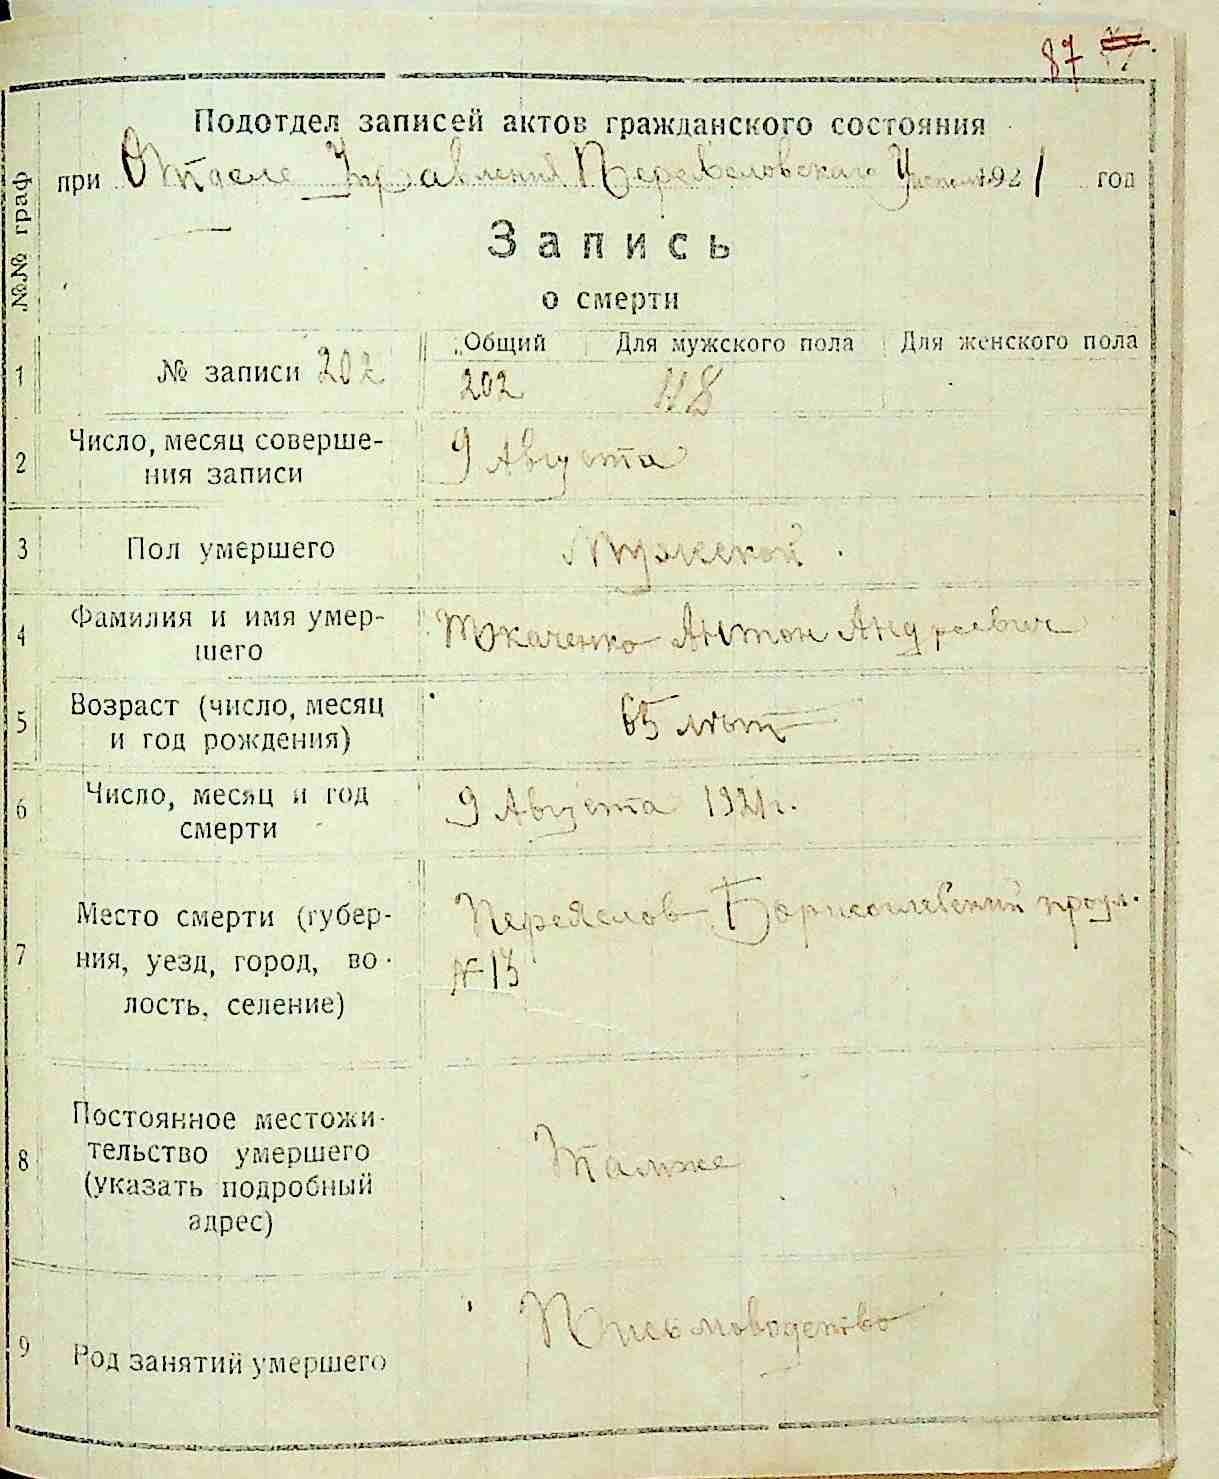 87
Подотдел записей актов гражданского состояния
при Отделе Управления Переяславскаго 1921 год
№№ граф
Запись
о смерти
Общий Для мужского пола Для женского пола
1 № записи 202 202 118
2 Число, месяц соверше-
ния записи
9 Августа
3 Пол умершего Мужской
4 Фамилия и имя умер-
шего
Ткаченко Антон Андреевич
5 Возраст (число, месяц
и год рождения)
65 лет
6 Число, месяц и год
смерти
9 Августа 1921 г.
7 Место смерти (губер-
ния, уезд, город, во-
лость, селение)
Переяслов Борисоглебский проул.
№ 13
8 Постоянное местожи-
тельство умершего
(указать подробный
адрес)
Тамже
9 Род занятий умершего Письмоводство